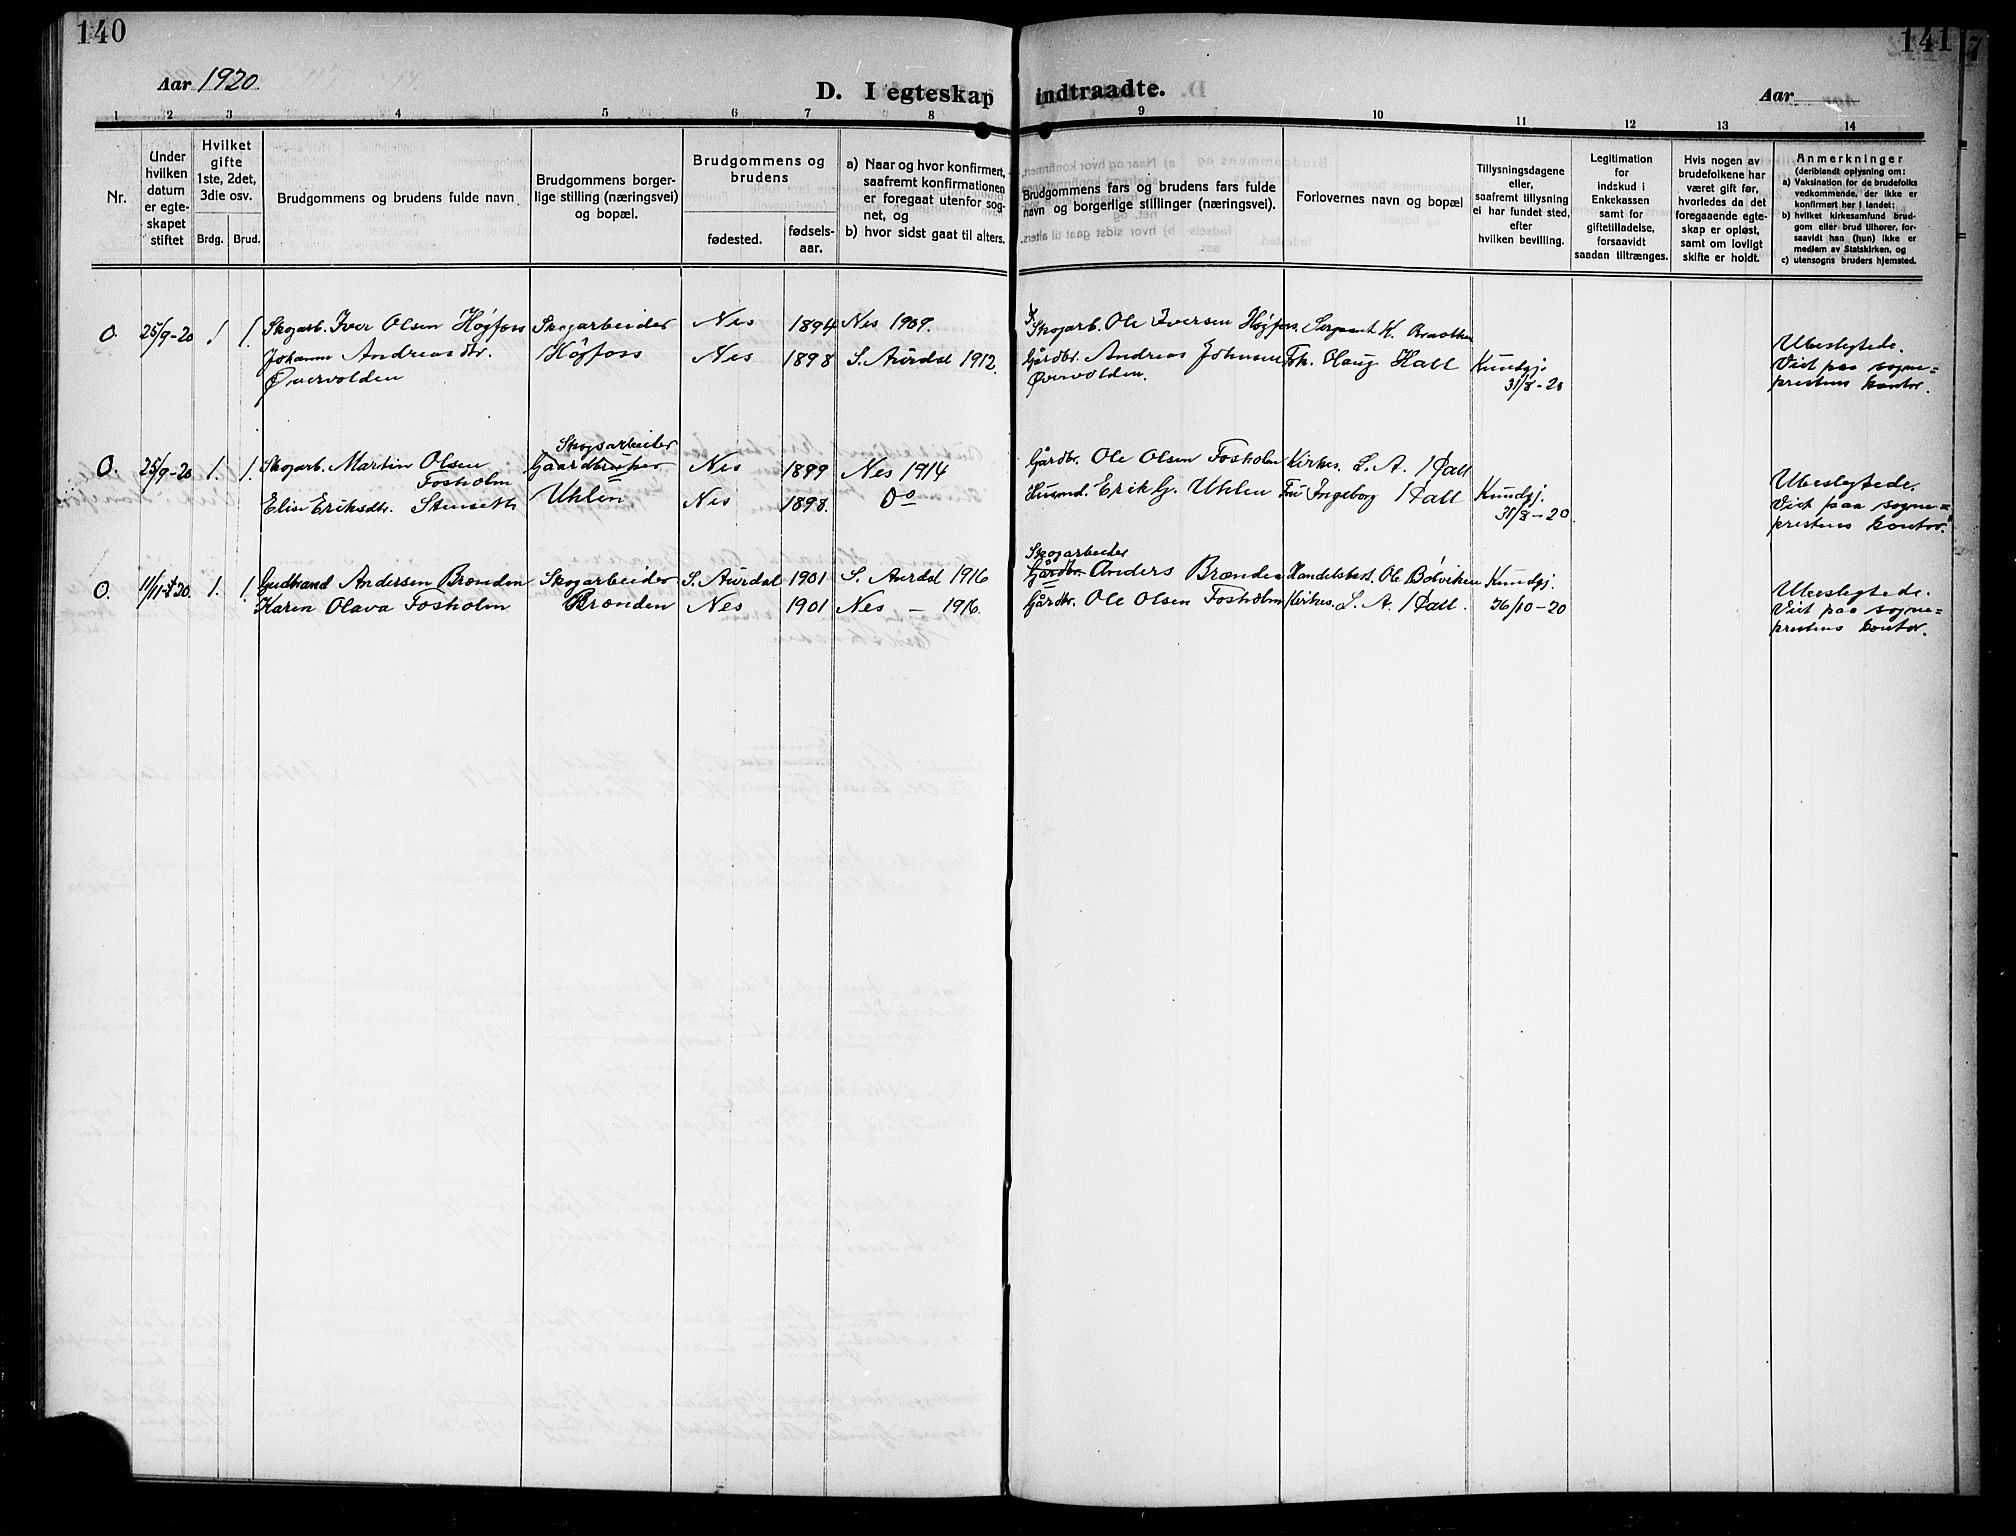 140
141
7
Aar 1920.
D. I egteskap indtraadte.
Aar
1 2 3 4 5 6 7 8 9 10 11 12 13 14
Nr.
Under
hvilken
datum
er egte-
skapet
stiftet
Hvilket
gifte
1ste, 2det,
3die osv.
Brdg. Brud.
Brudgommens og brudens fulde navn
Brudgommens borger-
lige stilling (næringsvei)
og bopæl.
Brudgommens og
brudens
fødested.
fødsels-
aar.
a) Naar og hvor konfirmert,
saafremt konfirmationen
er foregaat utenfor sog-
net, og
b) hvor sidst gaat til alters.
Brudgommens fars og brudens fars fulde
navn og borgerlige stillinger (næringsvei).
Forlovernes navn og bopæl
Tillysningsdagene
eller,
saafremt tillysning
ei har fundet sted,
efter
hvilken bevilling.
Legitimation
for
indskud i
Enkekassen
samt for
giftetilladelse,
forsaavidt
saadan tiltrænges.
Hvis nogen av
brudefolkene har
været gift før,
hvorledes da det
foregaaende egte-
skap er opløst,
samt om lovligt
skifte er holdt.
Anmerkninger
(deriblandt oplysning om:
a) Vaksination for de brudefolks
vedkommende, der ikke er
konfirmert her i landet;
b) hvilket kirkesamfund brud-
gom eller brud tilhører, for-
saavidt han (hun) ikke er
medlem av Statskirken, og
c) utensogns bruders hjemsted.
O. 25/9-20 1 1. Skogarb. Iver Olsen Høgfoss Skogarbeider Nes 1894 Nes 1909. Skogarb. Ole Iversen Høgfoss. Sergeant K. Braathen
Johanne Andreasdtr. Høgfoss Nes 1898 S. Aurdal 1912. Gårdbr. Andreas Johnsen Frk. Haug Hall Kundgj.
Øvervolden Øvervolden. 31/8-20
Ubeslegtede.
Viet paa sogne=
prestens kontor.
Skogsarbeider
O. 25/9-20 1. 1. Skogarb. Martin Olsen Gaardbruker Nes 1899 Nes 1914 Gårdbr. Ole Olsen Fosholm Kirkes. L. A. Hall
Fosholm
Elise Eriksdtr. Stenseth Uhlen Nes 1898. Do Husmd. Erik G. Uhlen Fru Ingeborg Hall Kundgj.
31/8-20
Ubeslegtede.
Viet paa sogne=
prestens kontor.
Skogarbeider
O. 11/11-20. 1. 1. Gudbrand Andersen Brænden Skogarbeider S. Aurdal 1901 S. Aurdal 1916 Gårdbr. Anders Brænden Handelsbest. Ole Bølviken Kundgj.
Karen Olava Fosholm Brænden Nes 1901 Nes — 1916. Gårdbr. Ole Olsen Fosholm Kirkes. L. A. Hall. 26/10-20
Ubeslegtede.
Viet paa sogne=
prestens kontor.